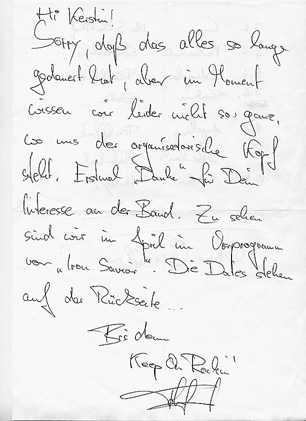 Hi Kerstin!
Sorry, daß das alles so lange
gedauert hat, aber im Moment
wissen wir leider nicht so ganz,
wo uns der organisatorische Kopf
steht. Erstmal "Danke" für Dein
Interesse an der Band. Zu sehen
sind wir im April im Vorprogramm
von „Iron Savior". Die Dates stehen
auf der Rückseite...
Bis dann
Keep On Rockin'